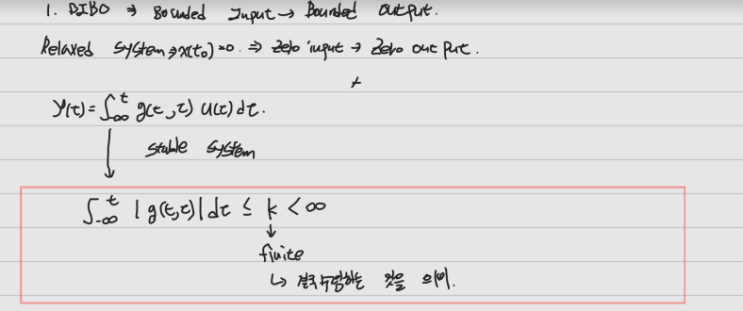 1. BIBO ⇒ Bounded Input → Bounded output.
Relaxed system ⇒ x(t₀)=0. ⇒ Zero input → Zero out put.
y(t) = ∫₋∞ᵗ g(t,τ) u(τ) dτ.
↓ stable system
∫₋∞ᵗ |g(t,τ)| dτ ≤ k < ∞
↓
finite
↳ 결국 수렴하는 것을 의미.